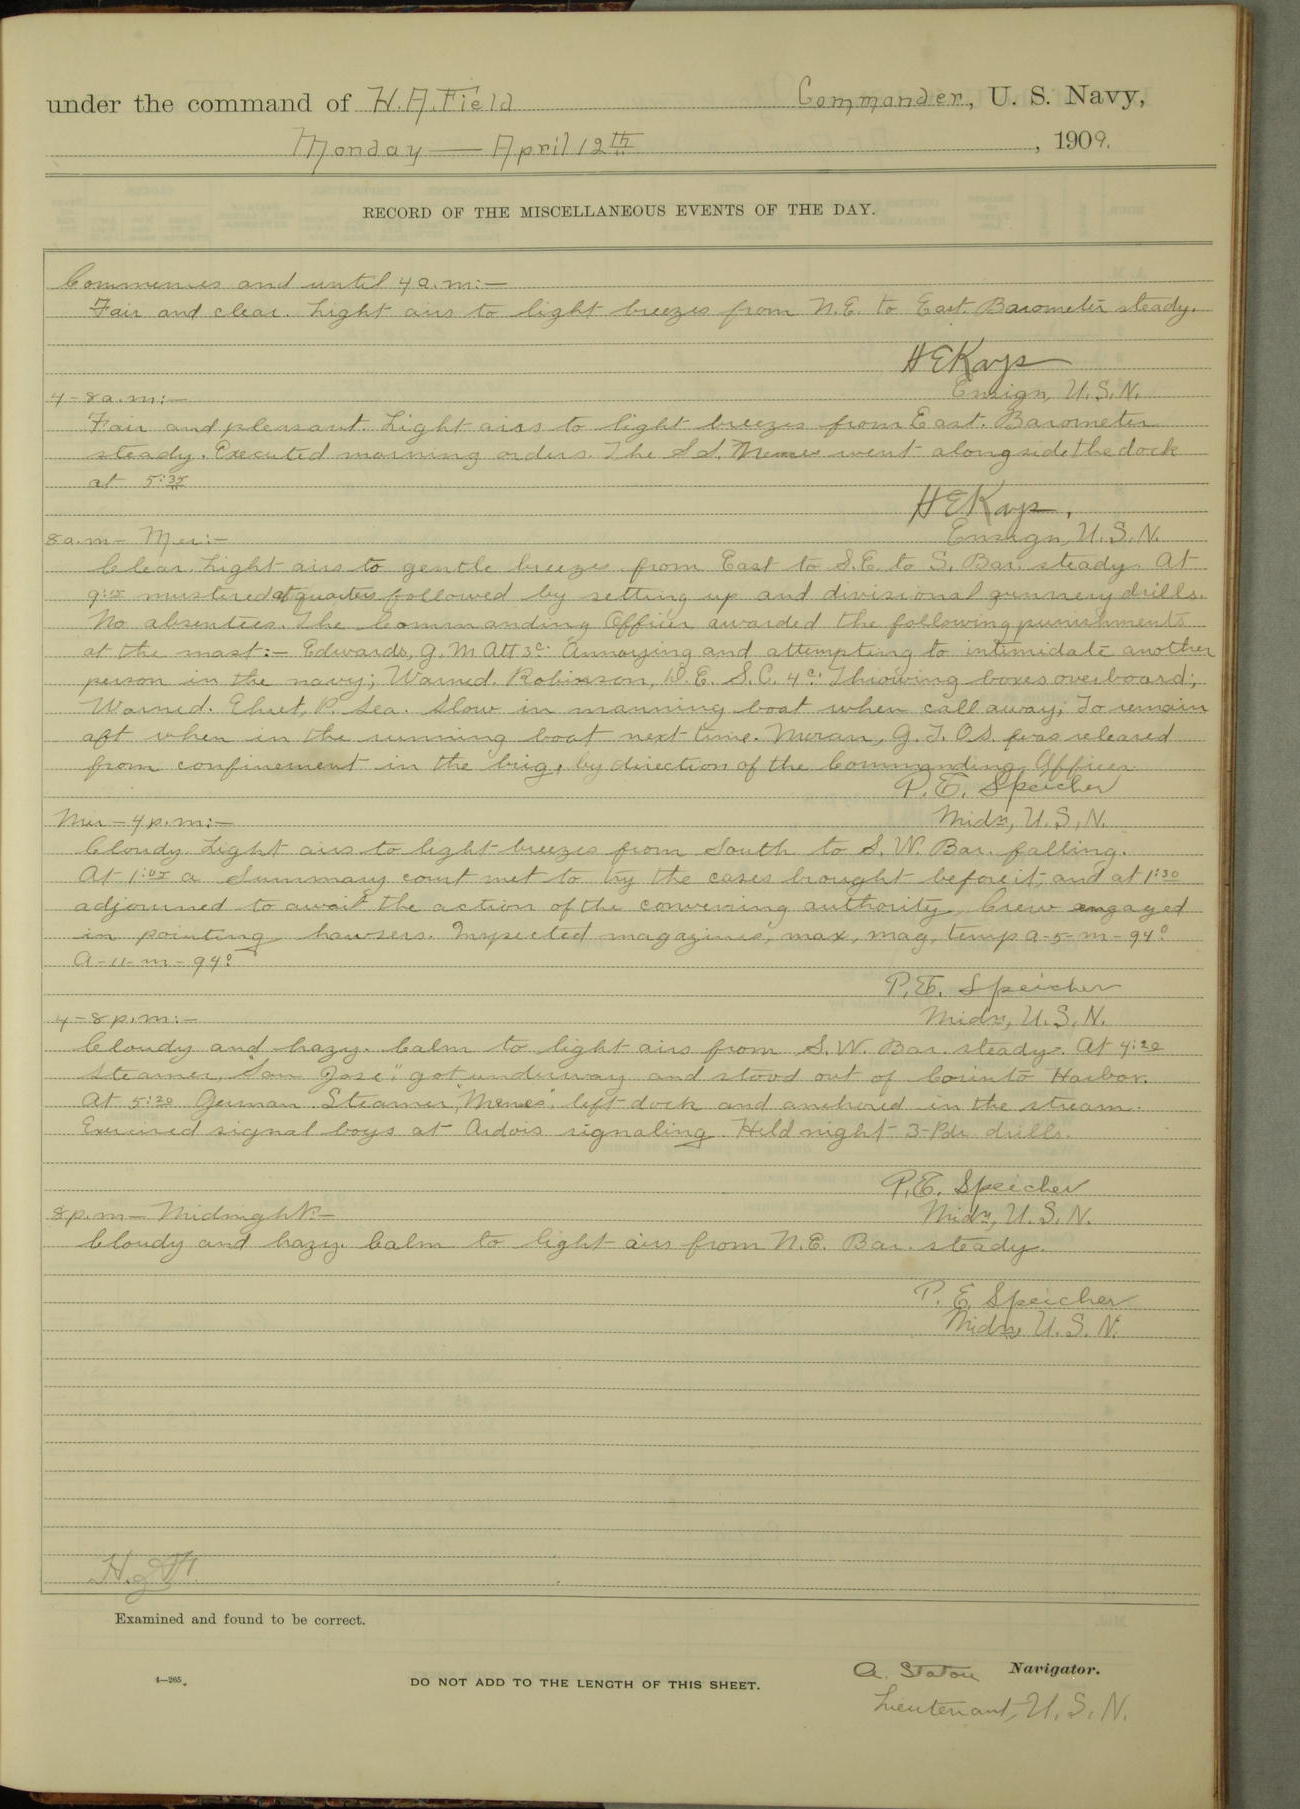 under the command of H. A. Field Commander, U. S. Navy,
Monday — April 12th, 1909.
RECORD OF THE MISCELLANEOUS EVENTS OF THE DAY.
Commences and until 4 a.m:—
Fair and clear. Light airs to light breezes from N.E. to East. Barometer steady.
H E Kays
Ensign, U.S.N.
4-8 a.m:—
Fair and pleasant. Light airs to light breezes from East. Barometer
steady. Executed morning orders. The S.S. Menes went alongside the dock
at 5:35
H E Kays.
Ensign, U.S.N.
8 a.m — Mer:—
Clear. Light airs to gentle breezes from East to S.E. to S. Bar. steady. At
mustered at quarters followed by setting up and divisional gunnery drills.
No absentees. The Commanding Officer awarded the following punishments
at the mast:— Edwards, G. M Att 3c. Annoying and attempting to intimidate another
person in the navy; Warned. Robinson, W. E. S.C. 4c. Throwing boxes overboard;
Warned. Ehret, P. Sea. Slow in manning boat when call away; To remain
aft when in the running boat next time. Moran, G. J. O.S. was released
from confinement in the brig, by direction of the Commanding Officer.
P. E. Speicher
Midn, U.S.N.
Mer — 4 p.m:—
Cloudy. Light airs to light breezes from South to S.W. Bar. falling.
At 1:05 a summary court met to try the cases brought before it, and at 1:30
adjourned to await the action of the convening authority. Crew engaged
in pointing hawsers. Inspected magazines, max, mag, temp A-5-m-94°
A-11-m-94°
P. E. Speicher
Midn, U.S.N.
4-8 p.m:—
Cloudy and hazy. Calm to light airs from S.W. Bar. steady. At 4:20
Steamer, "San Jose," got underway and stood out of Corinto Harbor.
At 5:20 German Steamer, "Menes" left dock and anchored in the stream.
Exercised signal boys at Ardois signaling. Held night 3-Pdr drills.
P. E. Speicher
Midn, U.S.N.
8 p.m — Midnight:—
Cloudy and hazy. Calm to light airs from N.E. Bar. steady.
P. E. Speicher
Midn, U.S.N.
Examined and found to be correct.
A. Staton Navigator.
4—265.
DO NOT ADD TO THE LENGTH OF THIS SHEET.
Lieutenant, U.S.N.